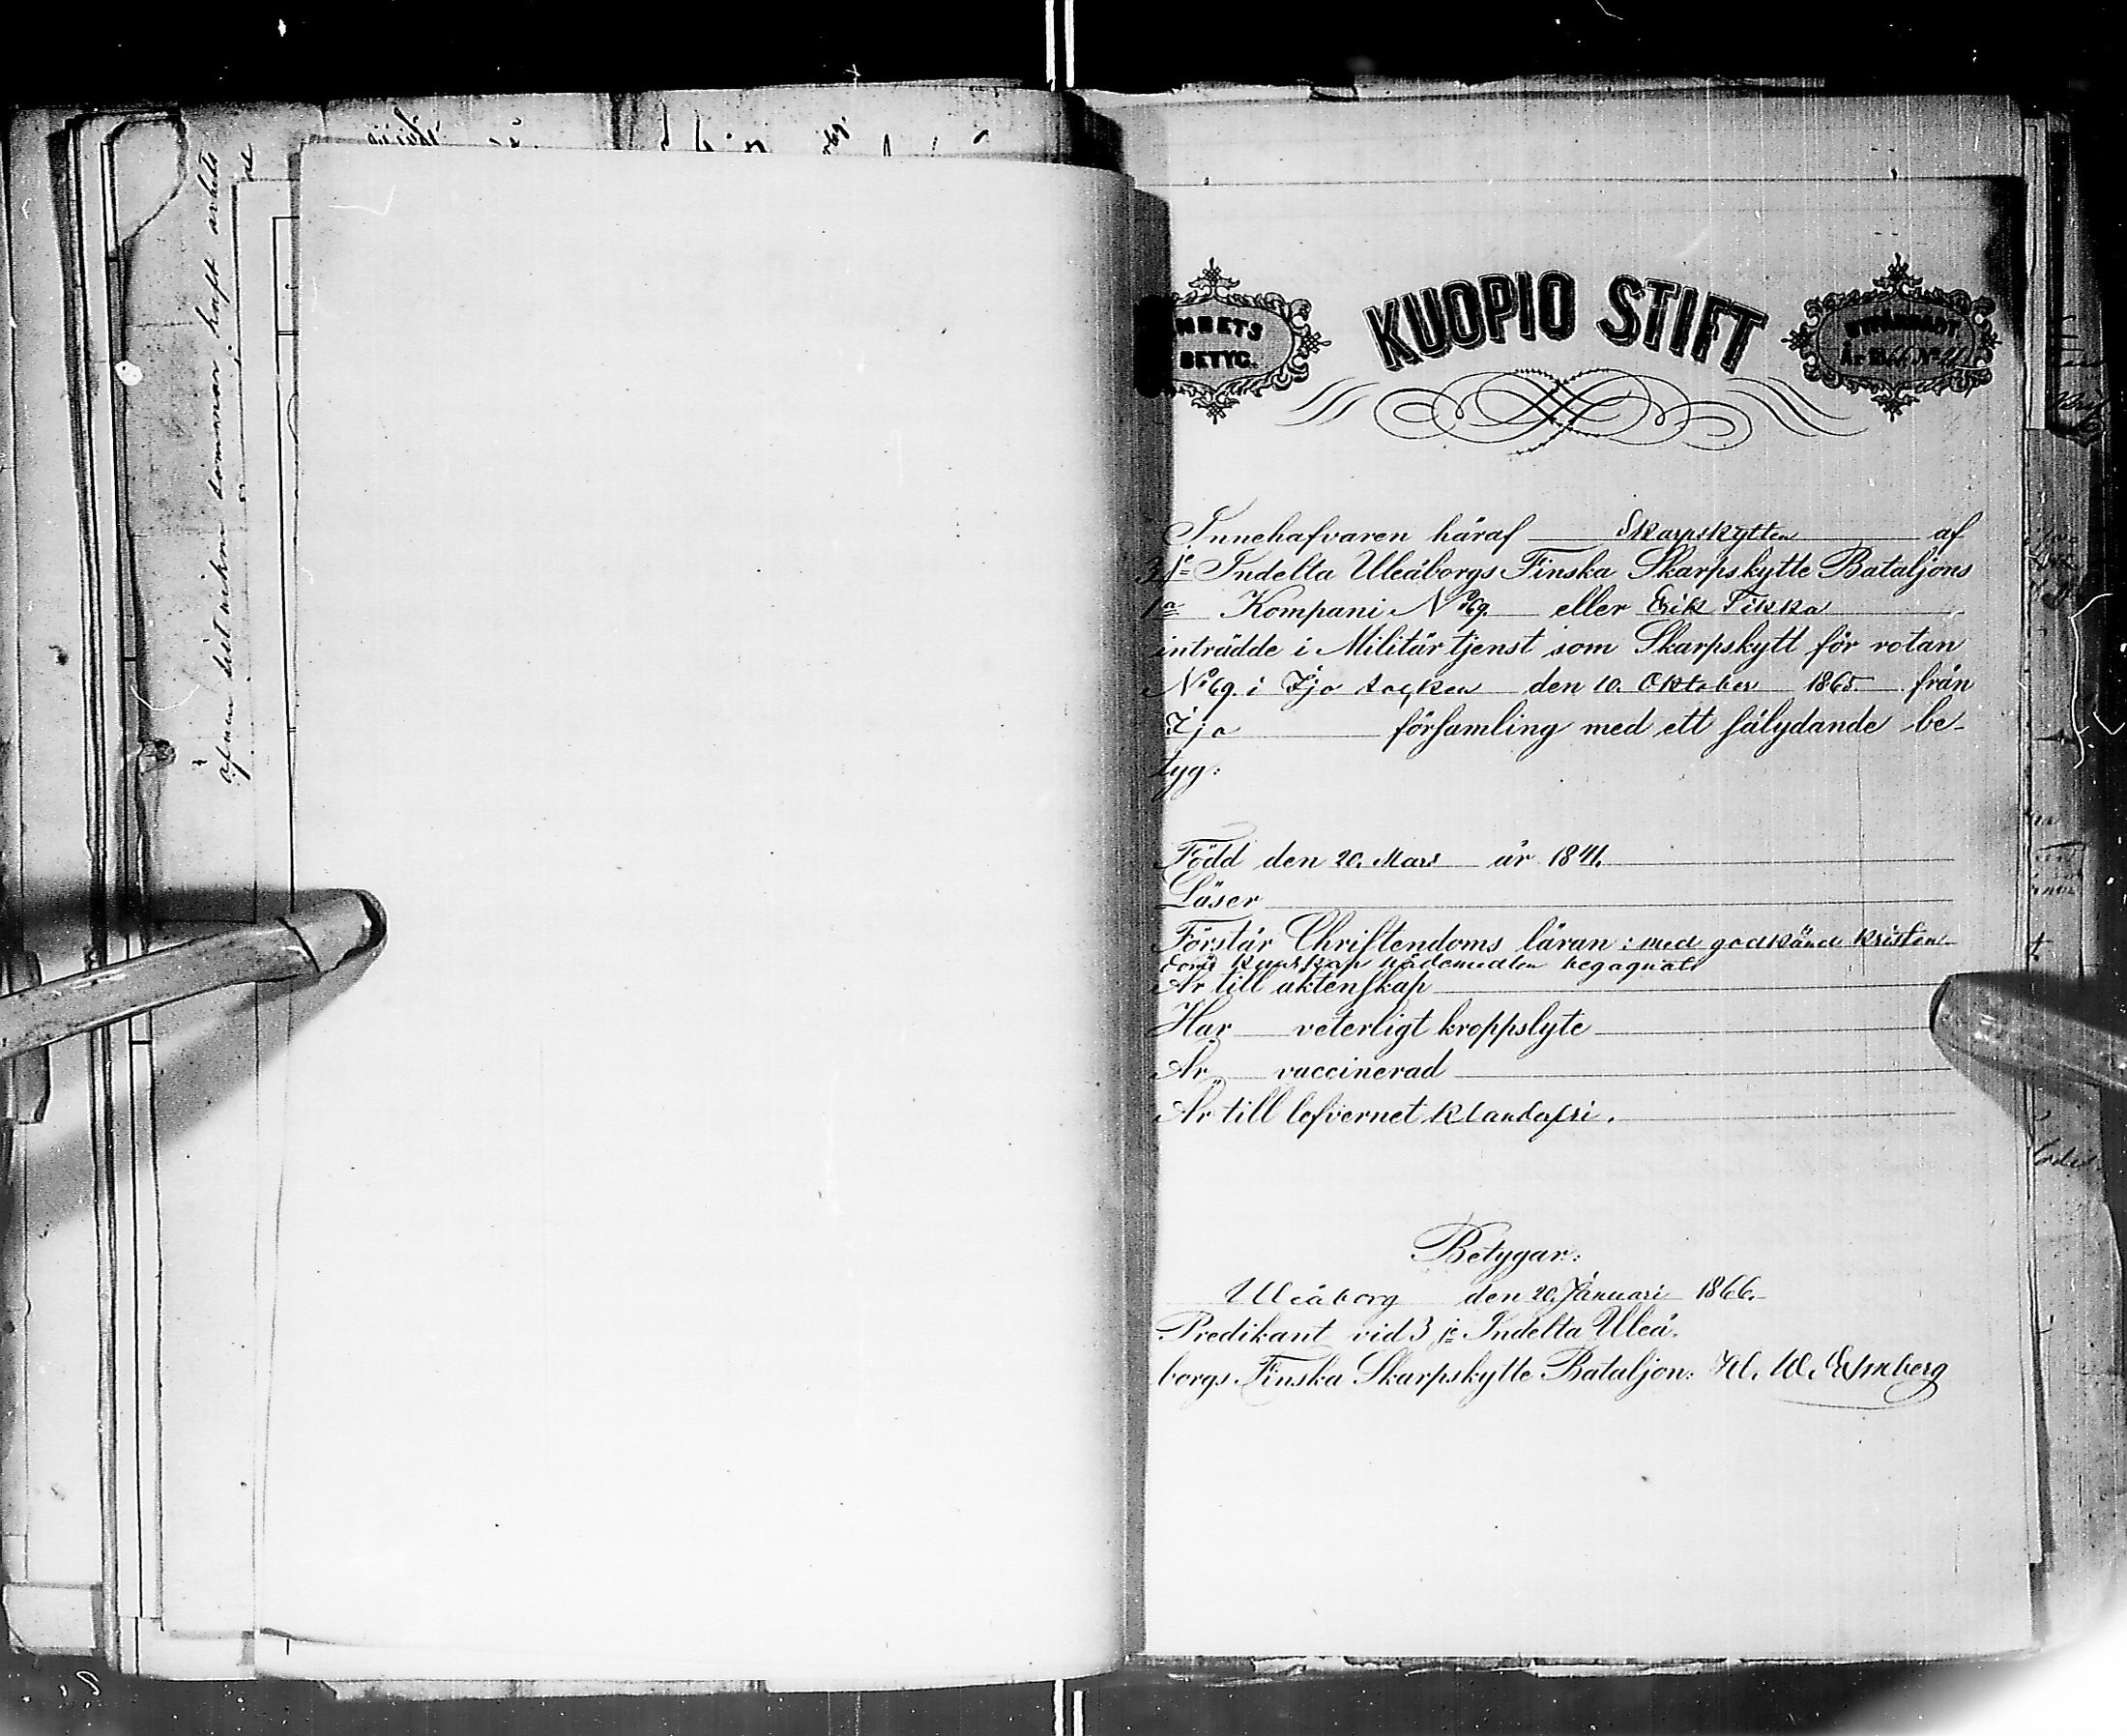 åfven sistvichne sommar, haft arbete
MBETS
BETYG.
KUOPIO STIFT
UTFÄRDADT
År 1866 No
Innehafvaren häraf Skarpskytten af
3je Indelta Uleåborgs Finska Skarpskytte Bataljons
1a Kompani No 69. eller Erik Tikka
inträdde i Militärtjenst som Skarpskytt för rotan
No 69. i Ijo socken den 10. Oktober 1865. från
Ijo församling med ett sålydande be-
tyg:
Född den 20. Mars år 1841.
Läser
Förstår Christendoms läran: med godkänd kristen-
doms kunskap nådemedlen begagnat
Är till äktenskap
Har veterligt kroppslyte
Är vaccinerad
Är till lefvernet klanderfri.
Betygar:
Uleåborg den 20. Januari 1866.
Predikant vid 3je Indelta Uleå-
borgs Finska Skarpskytte Bataljon: